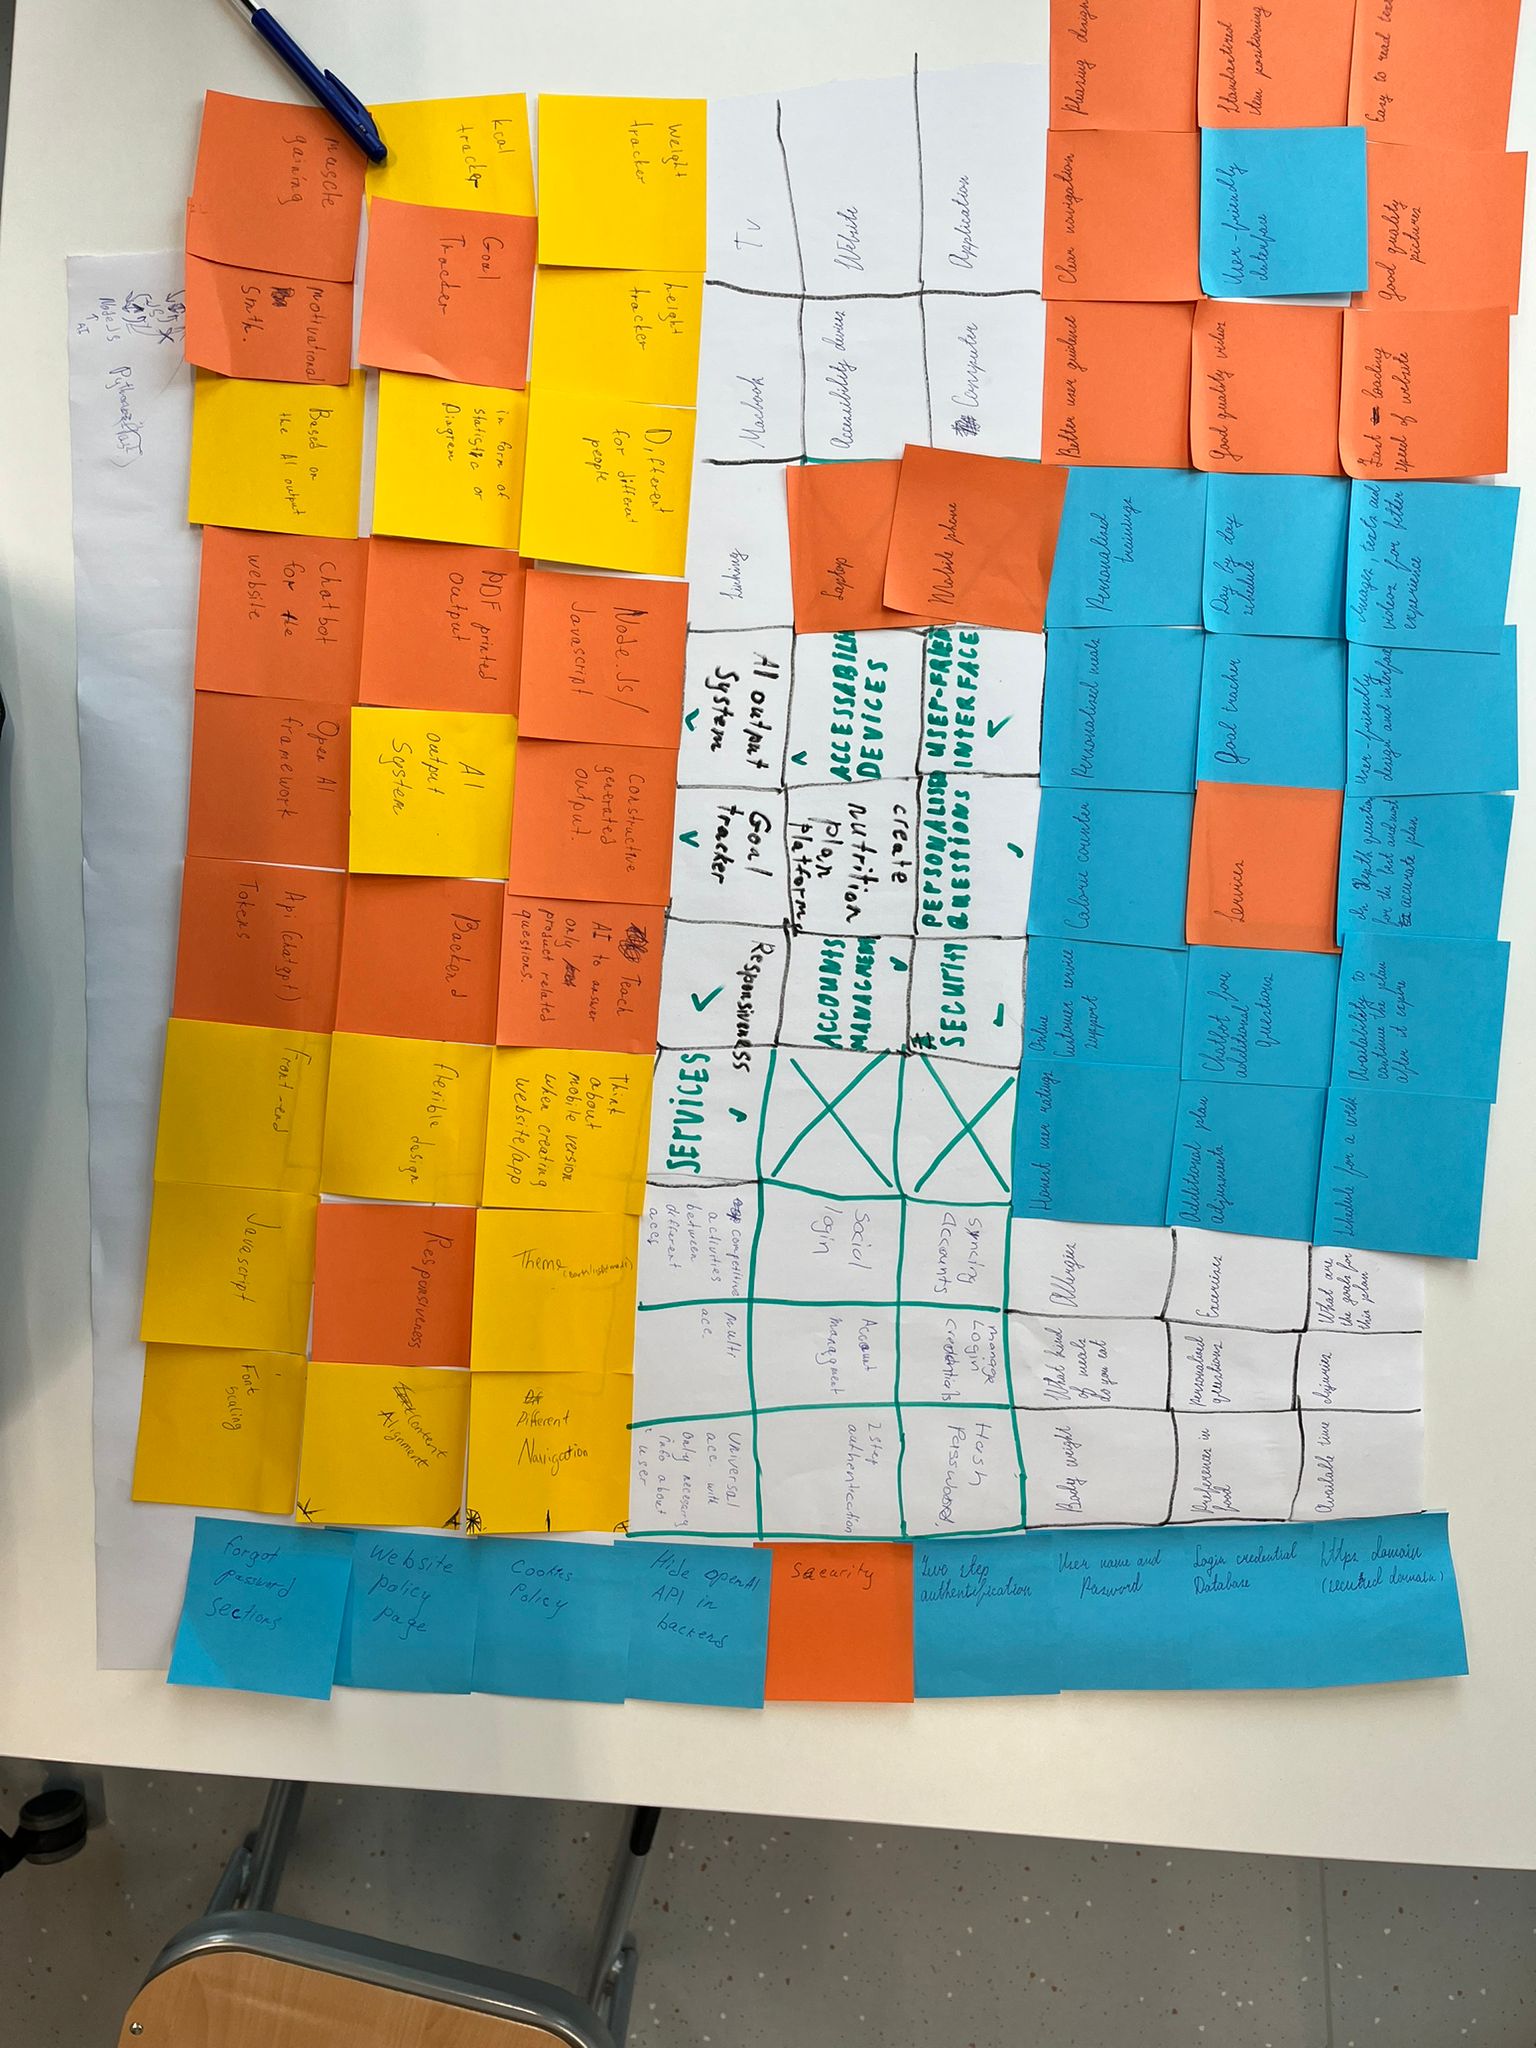 Easy to read
Good quality
pictures
Fast loading
speed of website
Images, texts and
videos for better
experience
User-friendly
design and interface
In depth questions
for the best and most
accurate plan
Availability to
continue the plan
after it expire
Schedule for a week
What are
the goals for
this plan
Injuries
Available time
https domain
(secured domain)
Standartized
item positioning
User-friendly
Interface
Good quality videos
Day by day
schedule
Goal tracker
Services
Chatbot for
additional
questions
Additional plan
adjusments
Exercises
personalised
questions
Preferences in
food
Login credential
Database
Pleasing design
Clean navigation
Better user guidence
Personalised
trainings
Personalised meals
Calorie counter
Online
Customer service
support
Honest user ratings
Allergies
What kind
of meals
do you eat
Body weight
User name and
Password
Application
Computer
Mobile phone
USER-FRIEND
INTERFACE
PERSONALISED
QUESTIONS
SECURITY
Syncing
Accounts
manage
Login
credentials
Hash
Passwoord.
Two step
authentification
Website
Accessibility devices
Laptop
ACCESSABILITY
DEVICES
create
nutrition
plan
platforms
ACCOUNTS
MANAGMENT
Social
login
Account
managment
2 step
authentication
Security
TV
Macbook
Linking
AI output
System
Goal
tracker
Responsiveness
SERVICES
competitive
activities
between
different
accs
multi
acc.
Universal
acc. with
only necessary
info about
user
Hide OpenAI
API in
backers
weight
tracker
height
tracker
Different
for different
people
Node.Js/
Javascript
Constructive
generated
output.
Teach
AI to answer
only
product related
questions.
Think
about
mobile version
when creating
website/app
Theme
Different
Navigation
Cookies
Policy
kcal
tracker
Goal
Tracker
in form of
statistic or
Diagram
PDF printed
output
AI
output
System
Backend
flexible
design
Responsiveness
Content
Alignment
Website
policy
page
muscle
gaining
motivational
smth.
Based on
the AI output
Chatbot
for the
website
Open AI
framework
Api (chatgpt)
Tokens
Front-end
Javascript
Font
Scaling
Forgot
password
sections
NodeJS
AI
Python